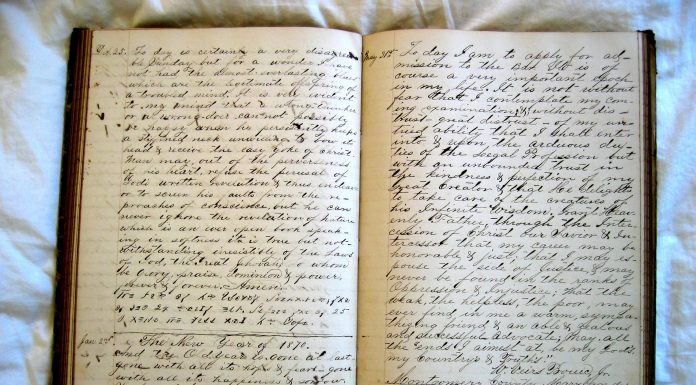 To day is certainly a very disagree
ble Sunday but for a wonder I have
not had the almost everlasting blues
which are the legitimate offspring of
a troubled mind. It is evident
to my mind that a
or a wrong doer can not possibly
be happy when he persistently keeps
a stiffened neck unwilling to bow its
heart & receive the easy yoke of Christ
Man may, out of the perverseness
of his heart, refuse the perusal of
Gods written revelation & thus endeav
or to screen his acts from the re-
proaches of conscience but he can
never ignore the revelation of nature
which is an ever open book speak-
ing in softness it is true but not-
withstanding irresistibly of the Laws
of God, the Great to whom
be Glory, praise, dominion & power,
forever & forever. Amen.
Jan 2nd The New Year of 1870.
And the Old Year is gone at last-
gone with all its hopes & fears- gone
with all its happiness & sorrow
May 31st To day I am to apply for ad-
mission to the Bar. It is of
course a very important epoch
in my life. It is not without
fear that I contemplate my com-
ing examination, & without dis-
trust-great distrust- of my un-
tried ability that I shall enter
into & upon the arduous du-
ties of the Legal Profession but
with an unbounded trust in
the kindness & perfection of my
Great Creator & that He delights
to take care of the creatures of
his Infinite Wisdom. Grant Heav-
enly Father, through the Inter-
cession of Christ Our Savior & In-
tercessor that my career may be
honorable & just, that I may es-
pouse the side of Justice, & may
never be found in the ranks of
Oppression & Injustice; that the
weak, the helpless, the poor, may
ever find in me a warm sympa-
thizing friend & an able & zealous
and successful advocate, May all
the Ends I aimest at, be my God's,
my Country's & Truth's."
W. Jr.
Montgomery County